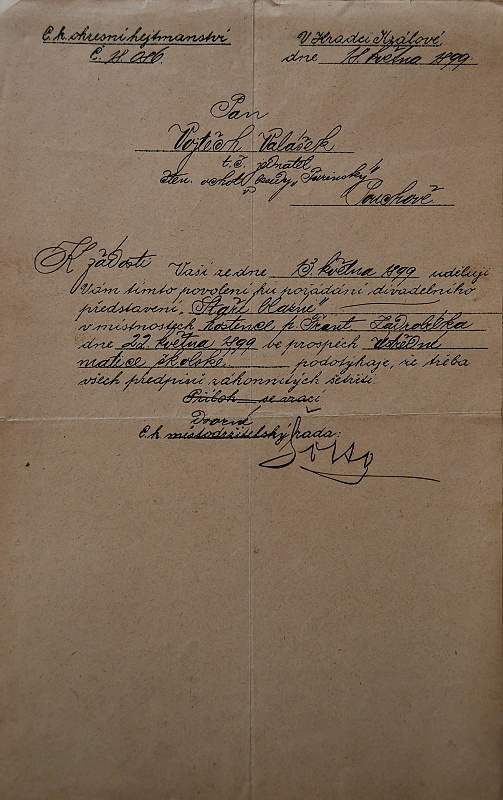 C. k. okresní hejtmanství
V Hradci Králové,
Č.
dne 18. května 1899.
Pan
Vojtěch Valášek
t. č. jednatel
čten. ochot. besedy,
Pouchově
K žádosti Vaší ze dne 13. května 1899 uděluji
Vám tímto povolení ku pořádání divadelního
představení,
v místnostech hostince p. Frant.
dne 22 května 1899 ve prospěch ústřední
matice školské. podotýkaje, že třeba
všech předpisů zákonnitých šetřiti.
Příloh se vrací
Dvorní
C. k. místodržitelský rada: